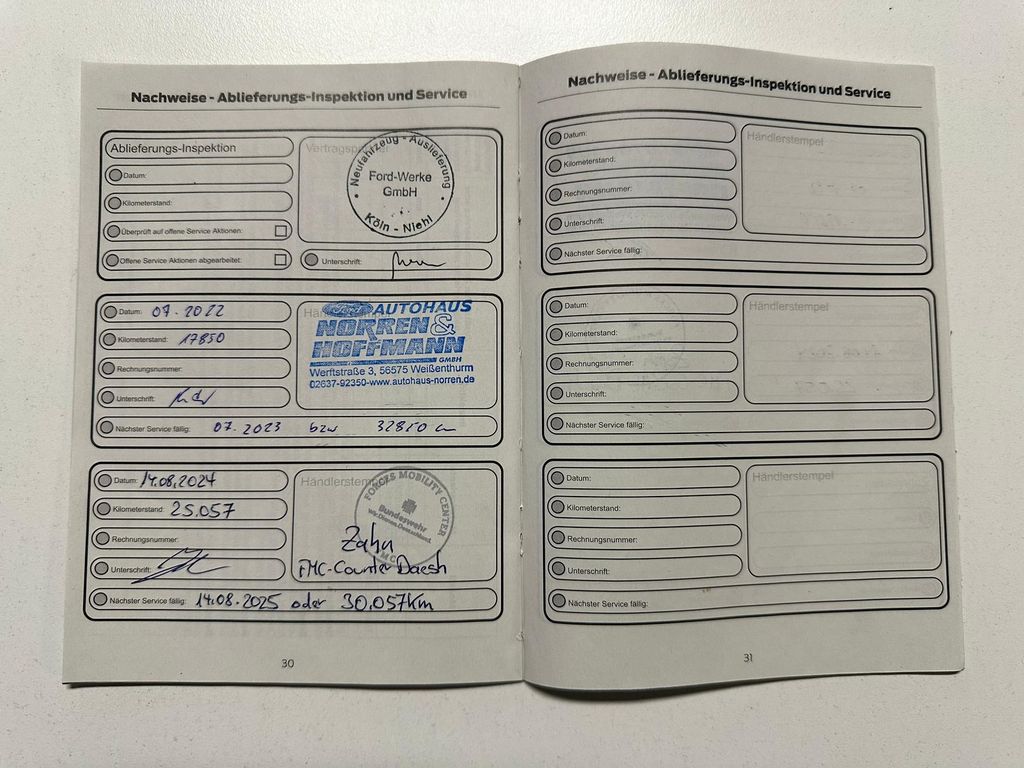 Nachweise - Ablieferungs-Inspektion und Service
Ablieferungs-Inspektion
Datum:
Kilometerstand:
Überprüft auf offene Service Aktionen:
Offene Service Aktionen abgearbeitet:
Neufahrzeug - Auslieferung
Ford-Werke
GmbH
Köln - Niehl
Unterschrift:
Datum: 07.2022
Kilometerstand: 17850
Rechnungsnummer:
Unterschrift:
Ford
AUTOHAUS
NORREN &
HOFFMANN
GMBH
Werftstraße 3, 56575 Weißenthurm
02637-92350-www.autohaus-norren.de
Nächster Service fällig: 07.2023 bzw 32850
Datum: 14.08.2024
Kilometerstand: 25.057
Rechnungsnummer:
Unterschrift:
Händlerstempel
FORCES MOBILITY CENTER
Bundeswehr
Wir.Dienen.Deutschland.
Zahn
FMC-Counter Daesh
Nächster Service fällig: 14.08.2025 oder 30.057km
30
Nachweise - Ablieferungs-Inspektion und Service
Datum:
Kilometerstand:
Rechnungsnummer:
Unterschrift:
Händlerstempel
Nächster Service fällig:
Datum:
Kilometerstand:
Rechnungsnummer:
Unterschrift:
Händlerstempel
Nächster Service fällig:
Datum:
Kilometerstand:
Rechnungsnummer:
Unterschrift:
Händlerstempel
Nächster Service fällig:
31